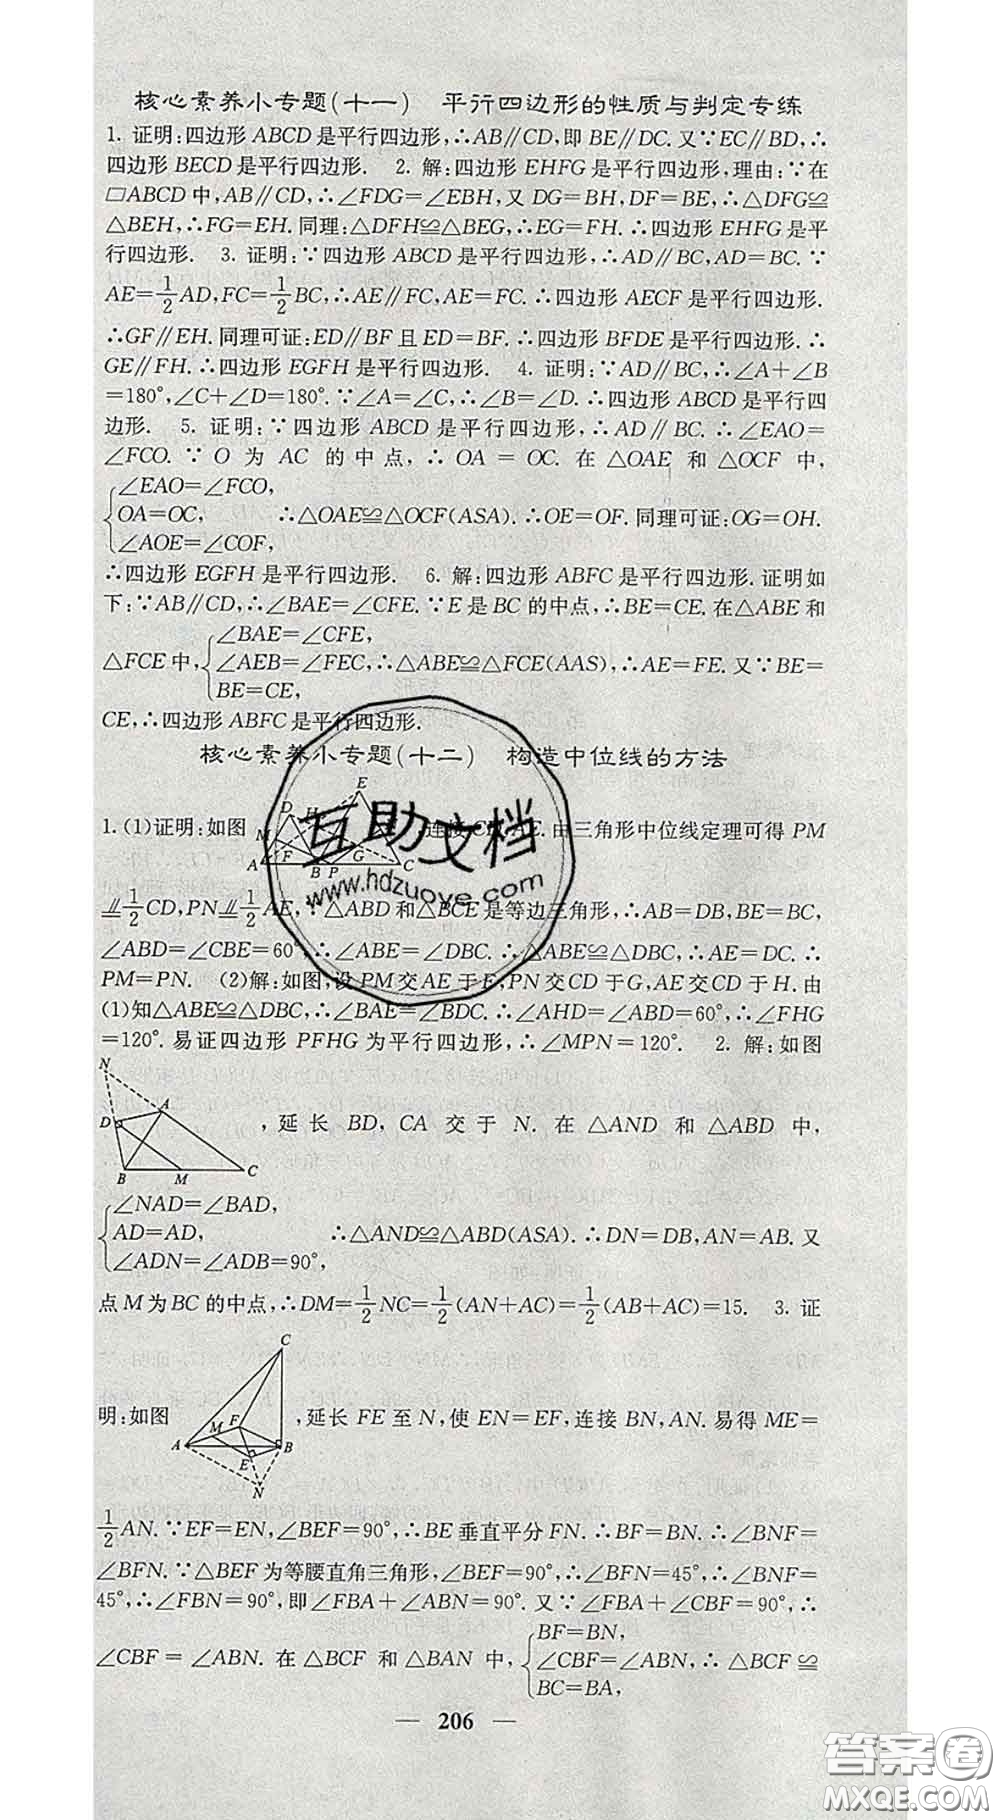 核心素养小专题(十一)　平行四边形的性质与判定专练
1. 证明:四边形 ABCD 是平行四边形,∴AB∥CD,即 BE∥DC. 又∵EC∥BD,∴
四边形 BECD 是平行四边形.　2. 解:四边形 EHFG 是平行四边形,理由:∵在
▱ABCD 中,AB∥CD,∴∠FDG=∠EBH,又 DG=BH,DF=BE,∴△DFG≌
△BEH,∴FG=EH. 同理:△DFH≌△BEG,∴EG=FH. ∴四边形 EHFG 是平
行四边形.　3. 证明:∵四边形 ABCD 是平行四边形,∴AD∥BC,AD=BC. ∵
AE=1/2AD,FC=1/2BC,∴AE∥FC,AE=FC. ∴四边形 AECF 是平行四边形.
∴GF∥EH. 同理可证:ED∥BF 且 ED=BF. ∴四边形 BFDE 是平行四边形. ∴
GE∥FH. ∴四边形 EGFH 是平行四边形.　4. 证明:∵AD∥BC,∴∠A+∠B
=180°,∠C+∠D=180°. ∵∠A=∠C,∴∠B=∠D. ∴四边形 ABCD 是平行四
边形.　5. 证明:∵四边形 ABCD 是平行四边形,∴AD∥BC. ∴∠EAO=
∠FCO. ∵ O 为 AC 的中点,∴ OA = OC. 在 △OAE 和 △OCF 中,
∠EAO=∠FCO,
OA=OC,　　∴△OAE≌△OCF(ASA). ∴OE=OF. 同理可证:OG=OH.
∠AOE=∠COF,
∴四边形 EGFH 是平行四边形.　6. 解:四边形 ABFC 是平行四边形. 证明如
下:∵AB∥CD,∴∠BAE=∠CFE. ∵E 是 BC 的中点,∴BE=CE. 在△ABE 和
∠BAE=∠CFE,
△FCE 中,∠AEB=∠FEC,∴△ABE≌△FCE(AAS),∴AE=FE. 又∵BE=
BE=CE,
CE,∴四边形 ABFC 是平行四边形.
核心素养小专题(十二)　构造中位线的方法
1. (1)证明:如图 连接 CD,AE. 由三角形中位线定理可得 PM
E
D
H
M
F
G
A
B P
C
1/2CD,PN 1/2AE,∵△ABD 和△BCE 是等边三角形,∴AB=DB,BE=BC,
∠ABD=∠CBE=60°,∴∠ABE=∠DBC. ∴△ABE≌△DBC,∴AE=DC. ∴
PM=PN.　(2)解:如图,设 PM 交 AE 于 F,PN 交 CD 于 G,AE 交 CD 于 H. 由
(1)知△ABE≌△DBC,∴∠BAE=∠BDC. ∴∠AHD=∠ABD=60°,∴∠FHG
=120°. 易证四边形 PFHG 为平行四边形,∴∠MPN=120°.　2. 解:如图
N
A
D
B
M
C
,延长 BD, CA 交于 N. 在 △AND 和 △ABD 中,
∠NAD=∠BAD,
AD=AD,　　∴△AND≌△ABD(ASA). ∴DN=DB,AN=AB. 又
∠ADN=∠ADB=90°,
点 M 为 BC 的中点,∴DM=1/2NC=1/2(AN+AC)=1/2(AB+AC)=15.　3. 证
C
M F
A
B
E
N
明:如图 ,延长 FE 至 N,使 EN=EF,连接 BN,AN. 易得 ME=
1/2AN. ∵EF=EN,∠BEF=90°,∴BE 垂直平分 FN. ∴BF=BN. ∴∠BNF=
∠BFN. ∵△BEF 为等腰直角三角形,∠BEF=90°,∴∠BFN=45°,∴∠BNF=
45°,∴∠FBN=90°,即∠FBA+∠ABN=90°. 又∵∠FBA+∠CBF=90°,∴
BF=BN,
∠CBF = ∠ABN. 在 △BCF 和 △BAN 中,∠CBF=∠ABN,∴ △BCF ≌
BC=BA,
— 206 —
互助文档
www.hdzuoye.com
答案圈
MXQE.COM